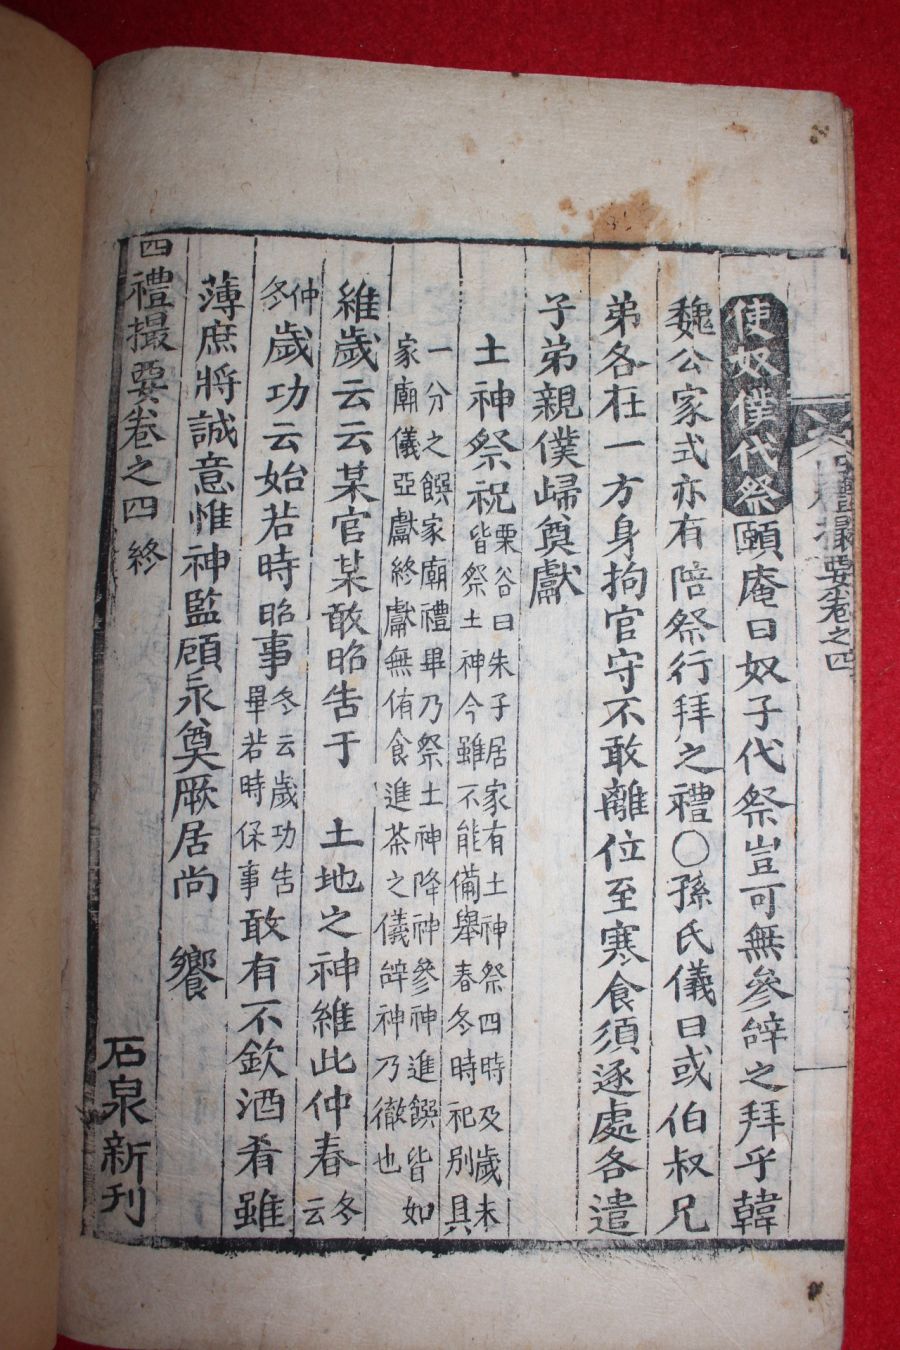 四禮撮要卷之四
使奴僕代祭頤庵曰奴子代祭豈可無參辭之拜乎韓
魏公家式亦有陪祭行拜之禮○孫氏儀曰或伯叔兄
弟各在一方身拘官守不敢離位至寒食須逐處各遣
子弟親僕歸奠獻
土神祭祝
栗谷曰朱子居家有土神祭四時及歲末
皆祭土神今雖不能備舉春冬時祀別具
一分之饌家廟禮畢乃祭土神降神參神進饌皆如
家廟儀亞獻終獻無侑食進茶之儀辭神乃徹也
維歲云云某官某敢昭告于　土地之神維此仲春
冬云
仲冬
歲功云始若時昭事
冬云歲功告
畢若時保事
敢有不欽酒肴雖
薄庶將誠意惟神監顧永奠厥居尚　饗
四禮撮要卷之四終
石泉新刊